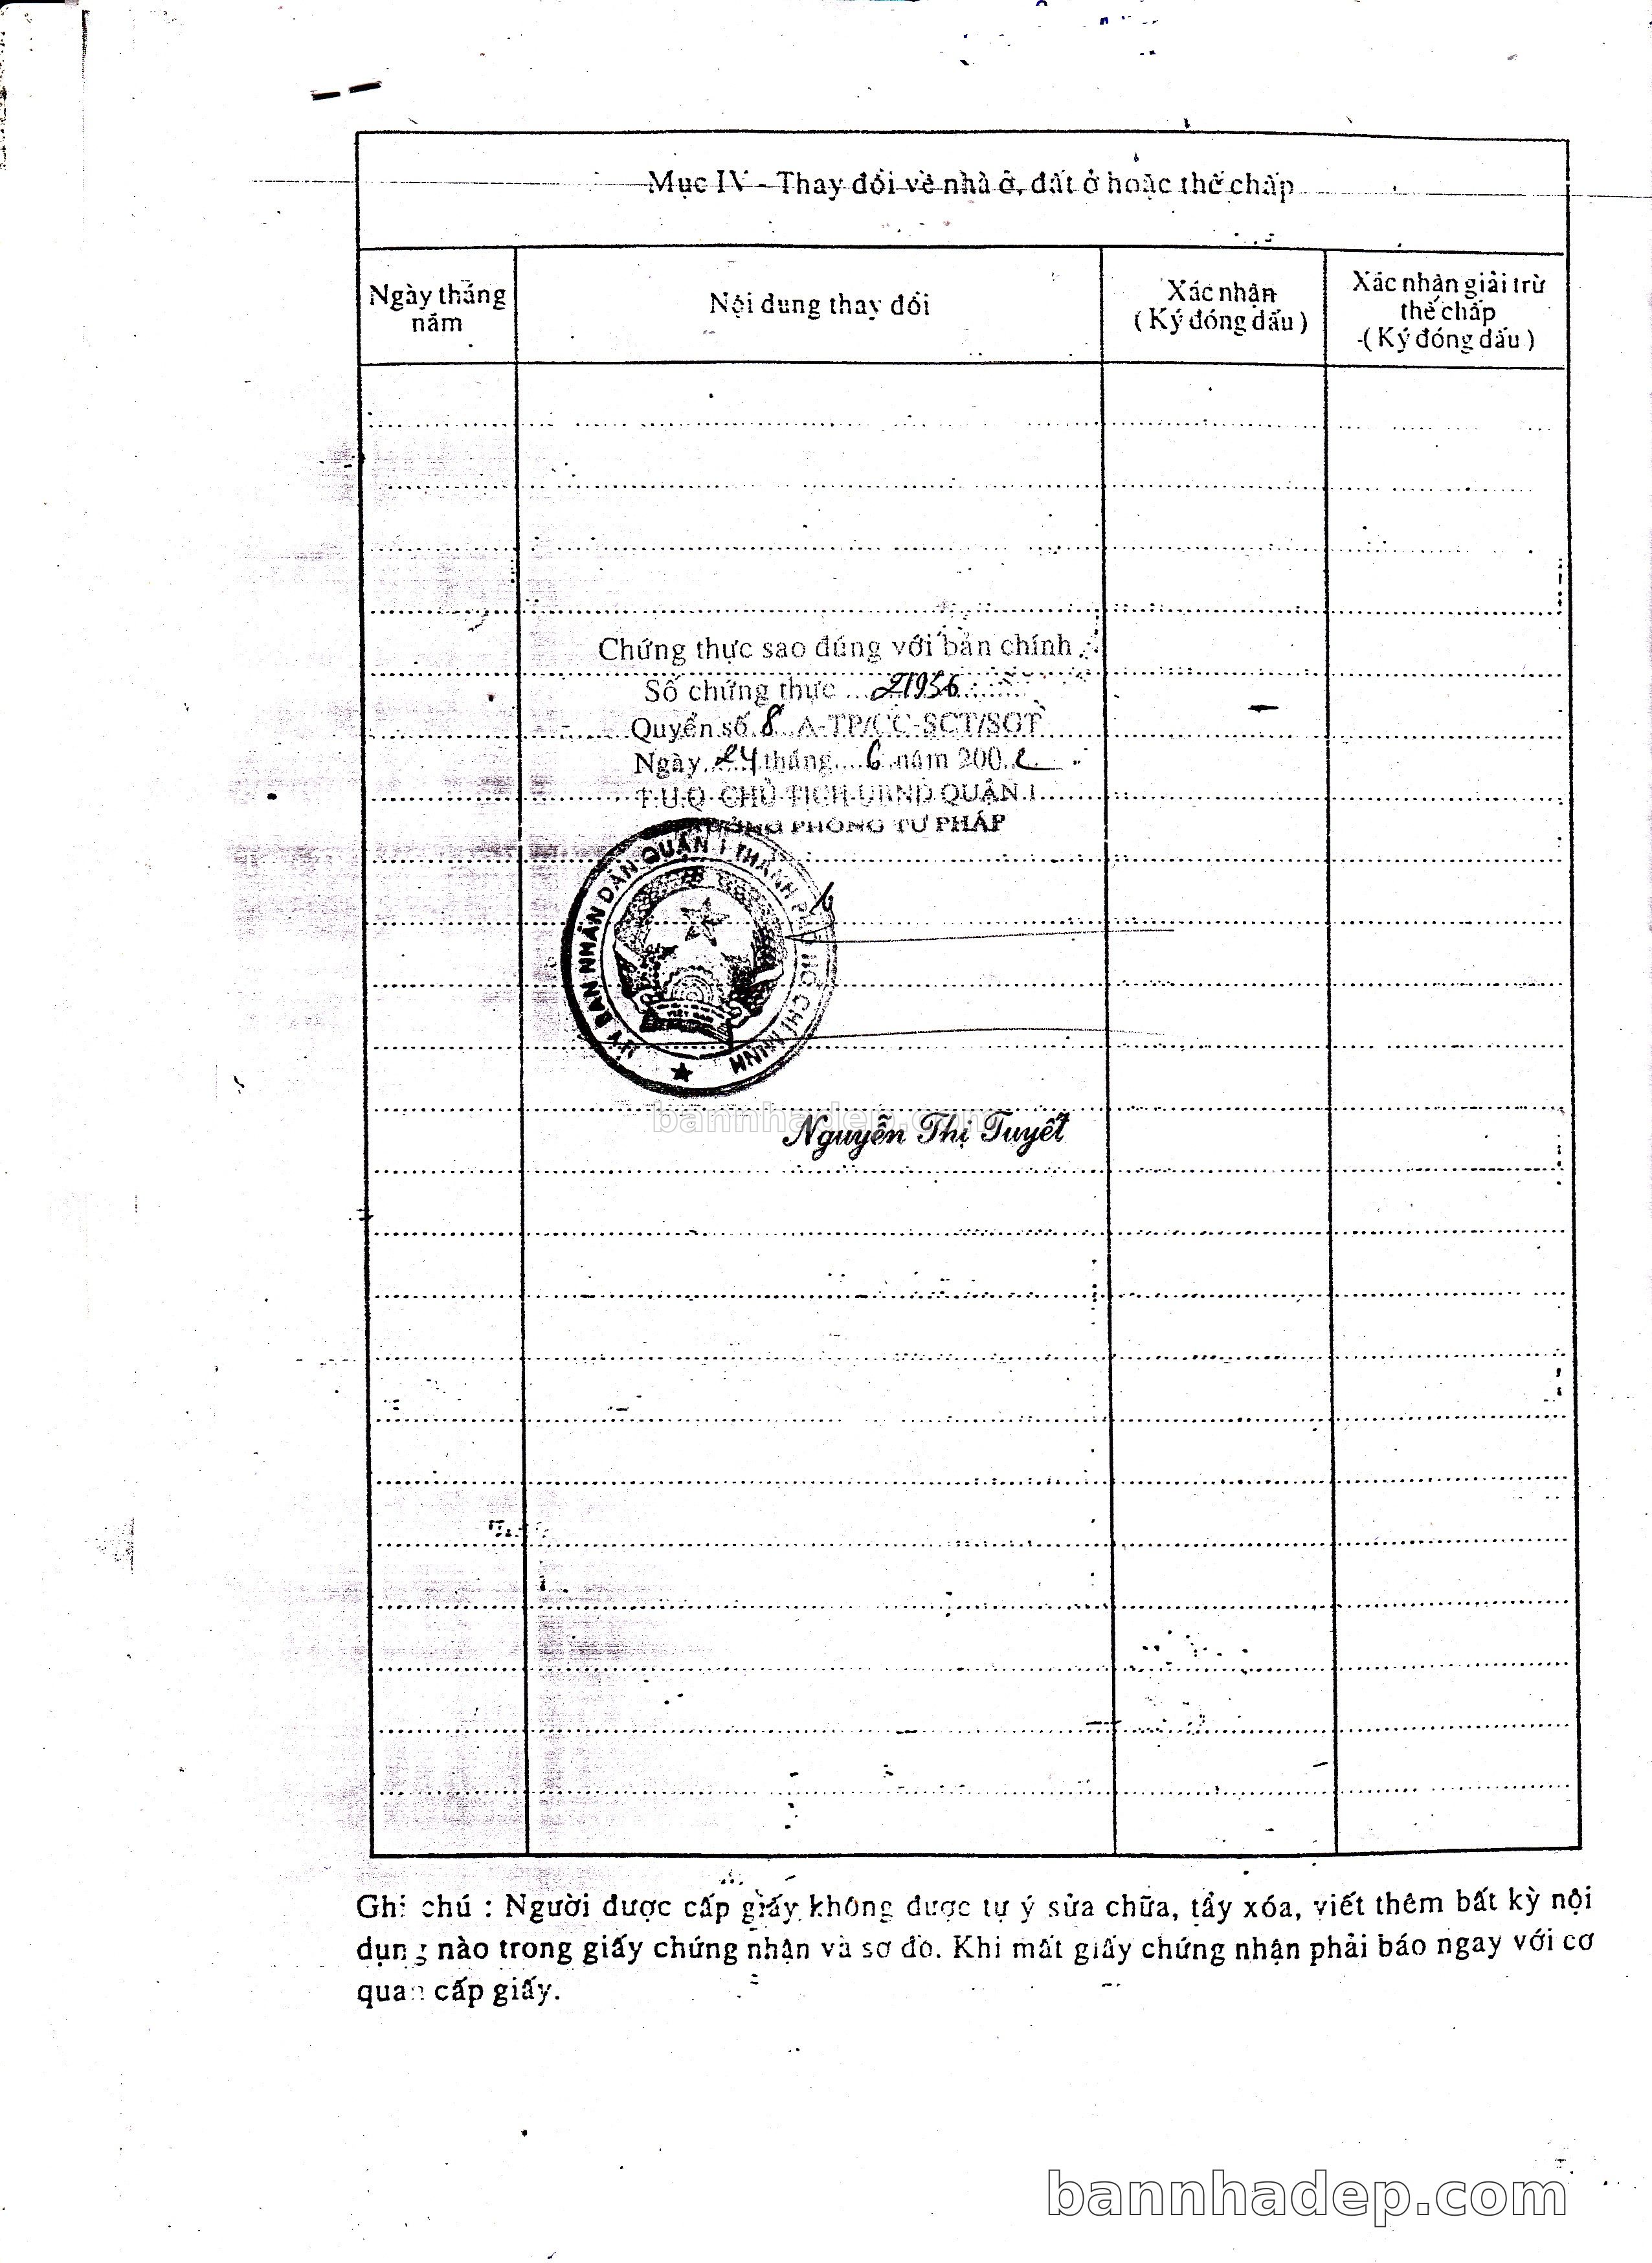 Mục IV - Thay đổi về nhà ở, đất ở hoặc thế chấp
Ngày tháng năm
Nội dung thay đổi
Xác nhận
( Ký đóng dấu )
Xác nhận giải trừ
thế chấp
( Ký đóng dấu )
Chứng thực sao đúng với bản chính
Số chứng thực ... 21956
Quyển số 8 A-TP/CC-SCT/SGT
Ngày 24 tháng 6 năm 2002
T.U.Q CHỦ TỊCH UBND QUẬN 1
TRƯỞNG PHÒNG TƯ PHÁP
ỦY BAN NHÂN DÂN QUẬN 1 THÀNH PHỐ HỒ CHÍ MINH
VIỆT NAM
bannhadep.com
Nguyễn Thị Tuyết
Ghi chú : Người được cấp giấy không được tự ý sửa chữa, tẩy xóa, viết thêm bất kỳ nội
dung nào trong giấy chứng nhận và sơ đồ. Khi mất giấy chứng nhận phải báo ngay với cơ
quan cấp giấy.
bannhadep.com